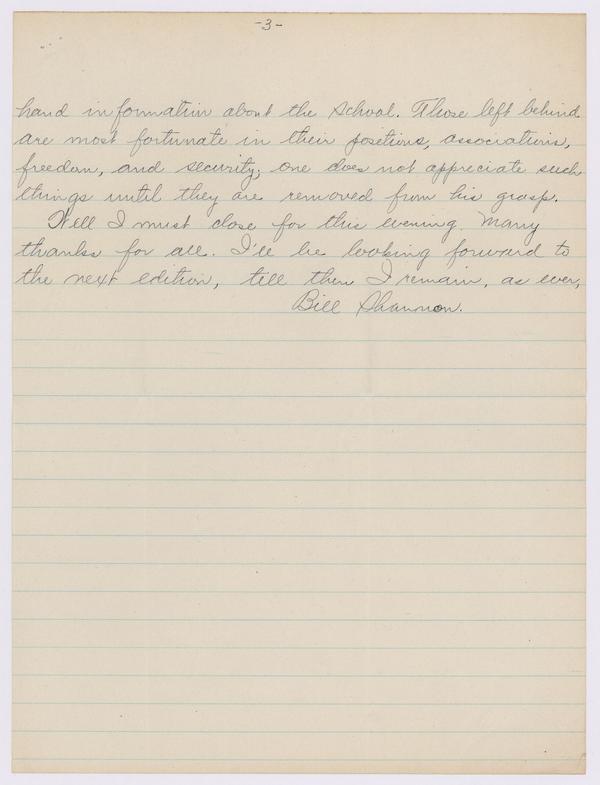 -3-
hand information about the school. Those left behind
are most fortunate in their positions, associations,
freedom, and security; one does not appreciate such
things until they are removed from his grasp.
Well I must close for this evening. Many
thanks for all. I'll be looking forward to
the next edition, till then I remain, as ever,
Bill Shannon.